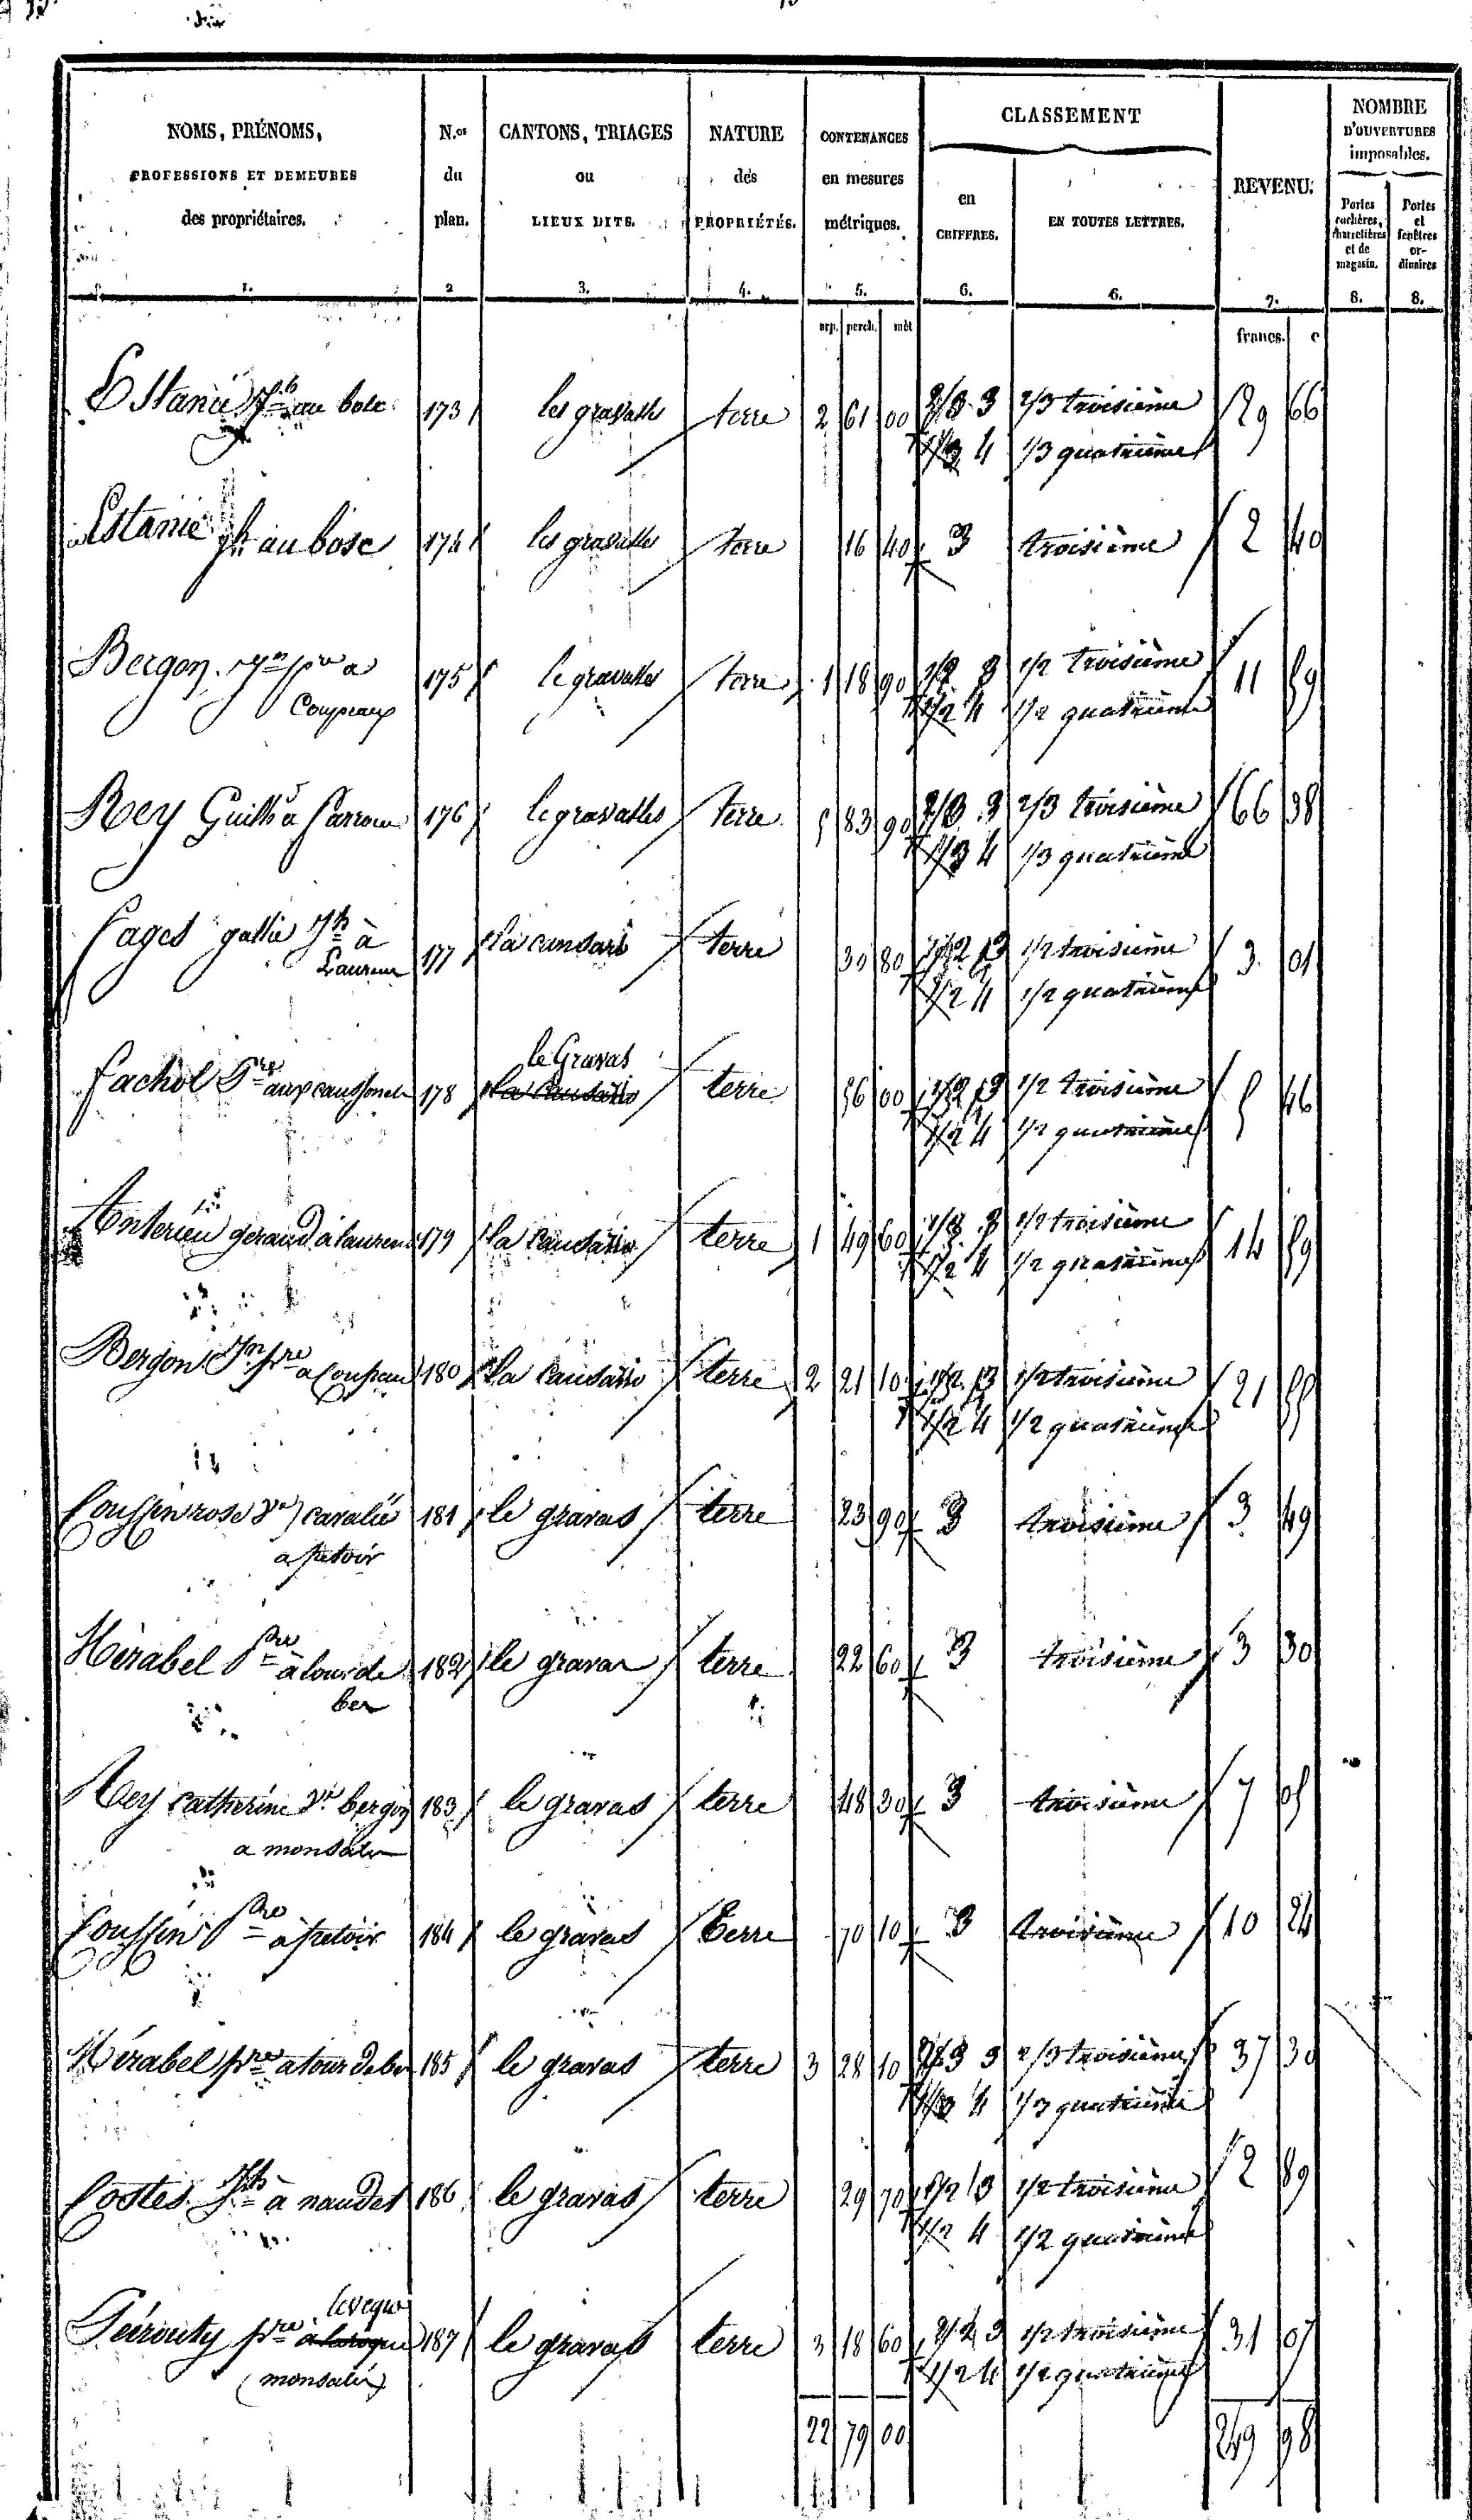 NOMS, PRÉNOMS, PROFESSIONS ET DEMEURES des propriétaires. 1.
N.os du plan. 2
CANTONS, TRIAGES ou LIEUX DITS. 3.
NATURE des PROPRIÉTÉS. 4.
CONTENANCES en mesures métriques. 5.
CLASSEMENT
en CHIFFRES. 6.
EN TOUTES LETTRES. 6.
REVENU. 7.
NOMBRE D'OUVERTURES imposables.
Portes cochères, charretières et de magasin. 8.
Portes et fenêtres ordinaires 8.
arp. perch. mèt francs. c
Estanié au bosc 173 les gravalles terre 2 61 00 2/3 3 2/3 troisième 29 66
1/3 4 1/3 quatrième
Estanié jh au bosc 174 les gravalles terre 16 40 3 troisième 2 40
Bergon jn pre a 175 le gravalles terre 1 18 90 1/2 3 1/2 troisième 11 59
Coupeaux 1/2 4 1/2 quatrième
Rey Guille à 176 le gravalles terre 5 83 90 2/3 3 2/3 troisième 66 38
1/3 4 1/3 quatrième
Cages jh à 177 la terre 30 80 1/2 3 1/2 troisième 3 01
1/2 4 1/2 quatrième
le Gravas
pre aux 178 la terre 56 00 1/2 3 1/2 troisième 5 46
1/2 4 1/2 quatrième
geraud à 179 la terre 1 49 60 1/2 3 1/2 troisième 14 59
1/2 4 1/2 quatrième
Bergon jn pre a 180 la terre 2 21 10 1/2 3 1/2 troisième 21 55
1/2 4 1/2 quatrième
rose ve cavalié 181 le gravas terre 23 90 3 troisième 3 49
a
Mirabel pre à tour de 182 le gravas terre 22 60 3 troisième 3 30
ber
Rey catherine ve bergon 183 le gravas terre 48 30 3 troisième 7 05
a monsalier
pre à 184 le gravas terre 70 10 3 troisième 10 24
Mirabel pre a tour de ber 185 le gravas terre 3 28 10 2/3 3 2/3 troisième 37 30
1/3 4 1/3 quatrième
Costes jh à naudet 186 le gravas terre 29 70 1/2 3 1/2 troisième 2 89
1/2 4 1/2 quatrième
leveque
pre à laroque 187 le gravas terre 3 18 60 1/2 3 1/2 troisième 31 07
(monsalié) 1/2 4 1/2 quatrième
22 79 00 249 98